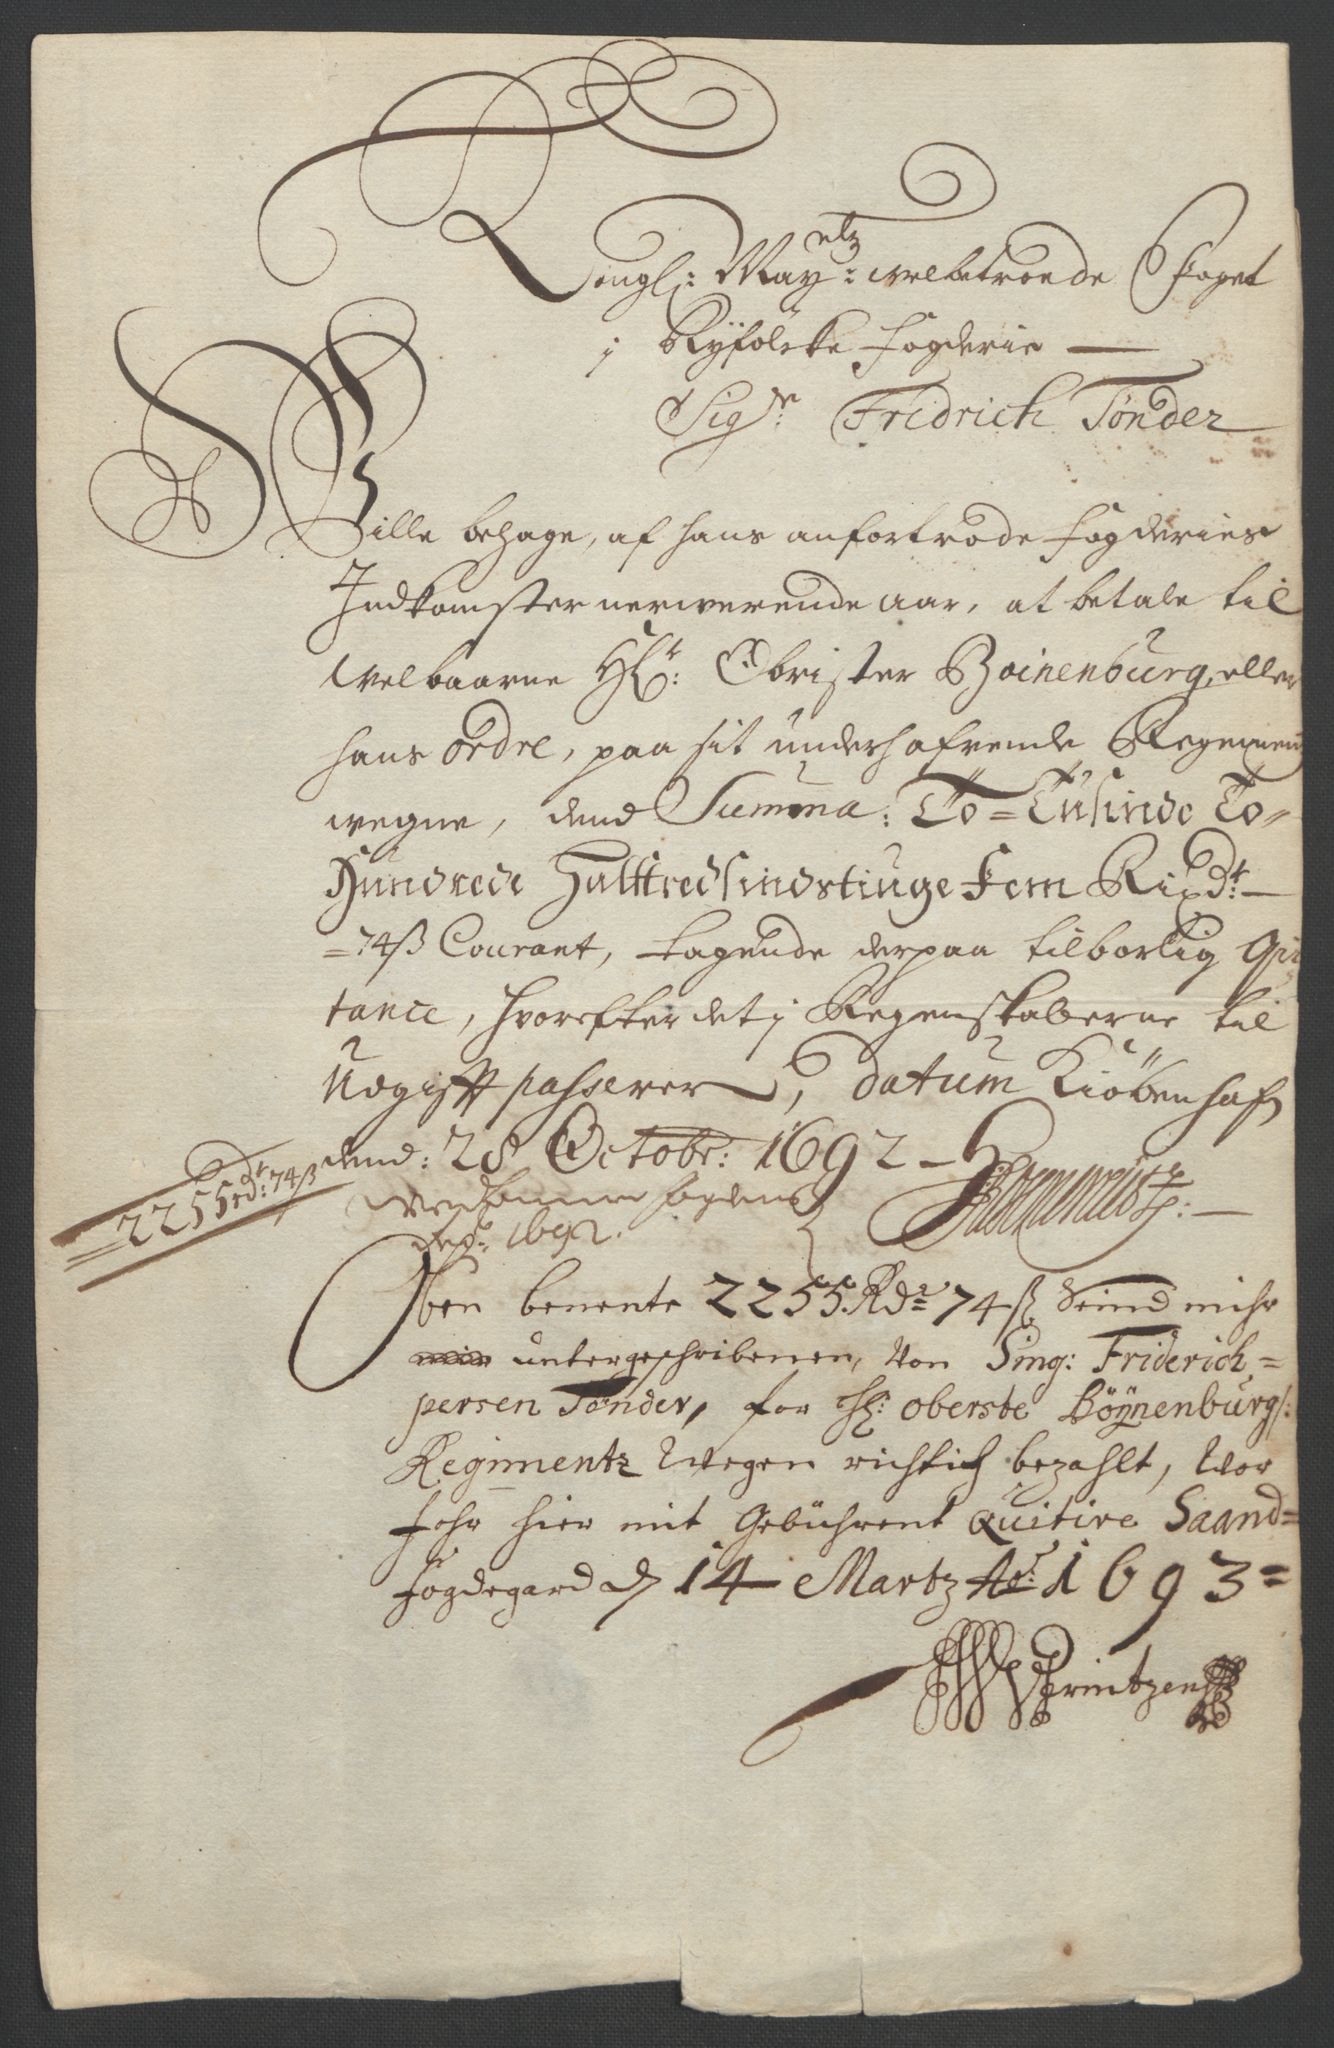 Kongl: May:etz velbetroede Foget
j Ryfölcke Fogderie
Sigr: Fridrich Tønder
Wille behage, af hans anfortrode Fogderies
Indkomster nerwerende aar, at betale til
Welbaarne Hr: Obrister Boinenburg, eller
hans ordre, paa sit underhafvende Regement
wegne, dend Summa: To=Tusinde To=
Hundrede Halftredsindstiuge Fem Rixdr:
=74ß Courant, tagende derpaa tilborlig Qvi
tance, hvorefter det j Regenskaberne til
Udgift passerer, datum Kiöbenhafn
dend: 28 Octobr: 1692
=2255rdr: 74ß
1692.
Oben benente 2255 Rdr 74ß Seind mihr
untergeschribenen, Von Sing: Friderich=
persen Tønder, for H: oberste Böÿnenburg:
Regimentz Wegen richtich bezahlt, Wor
fohr hier mit Gebührent Quitire Saand=
fogdegard d 14 Martz Ao: 1693=
Printzen